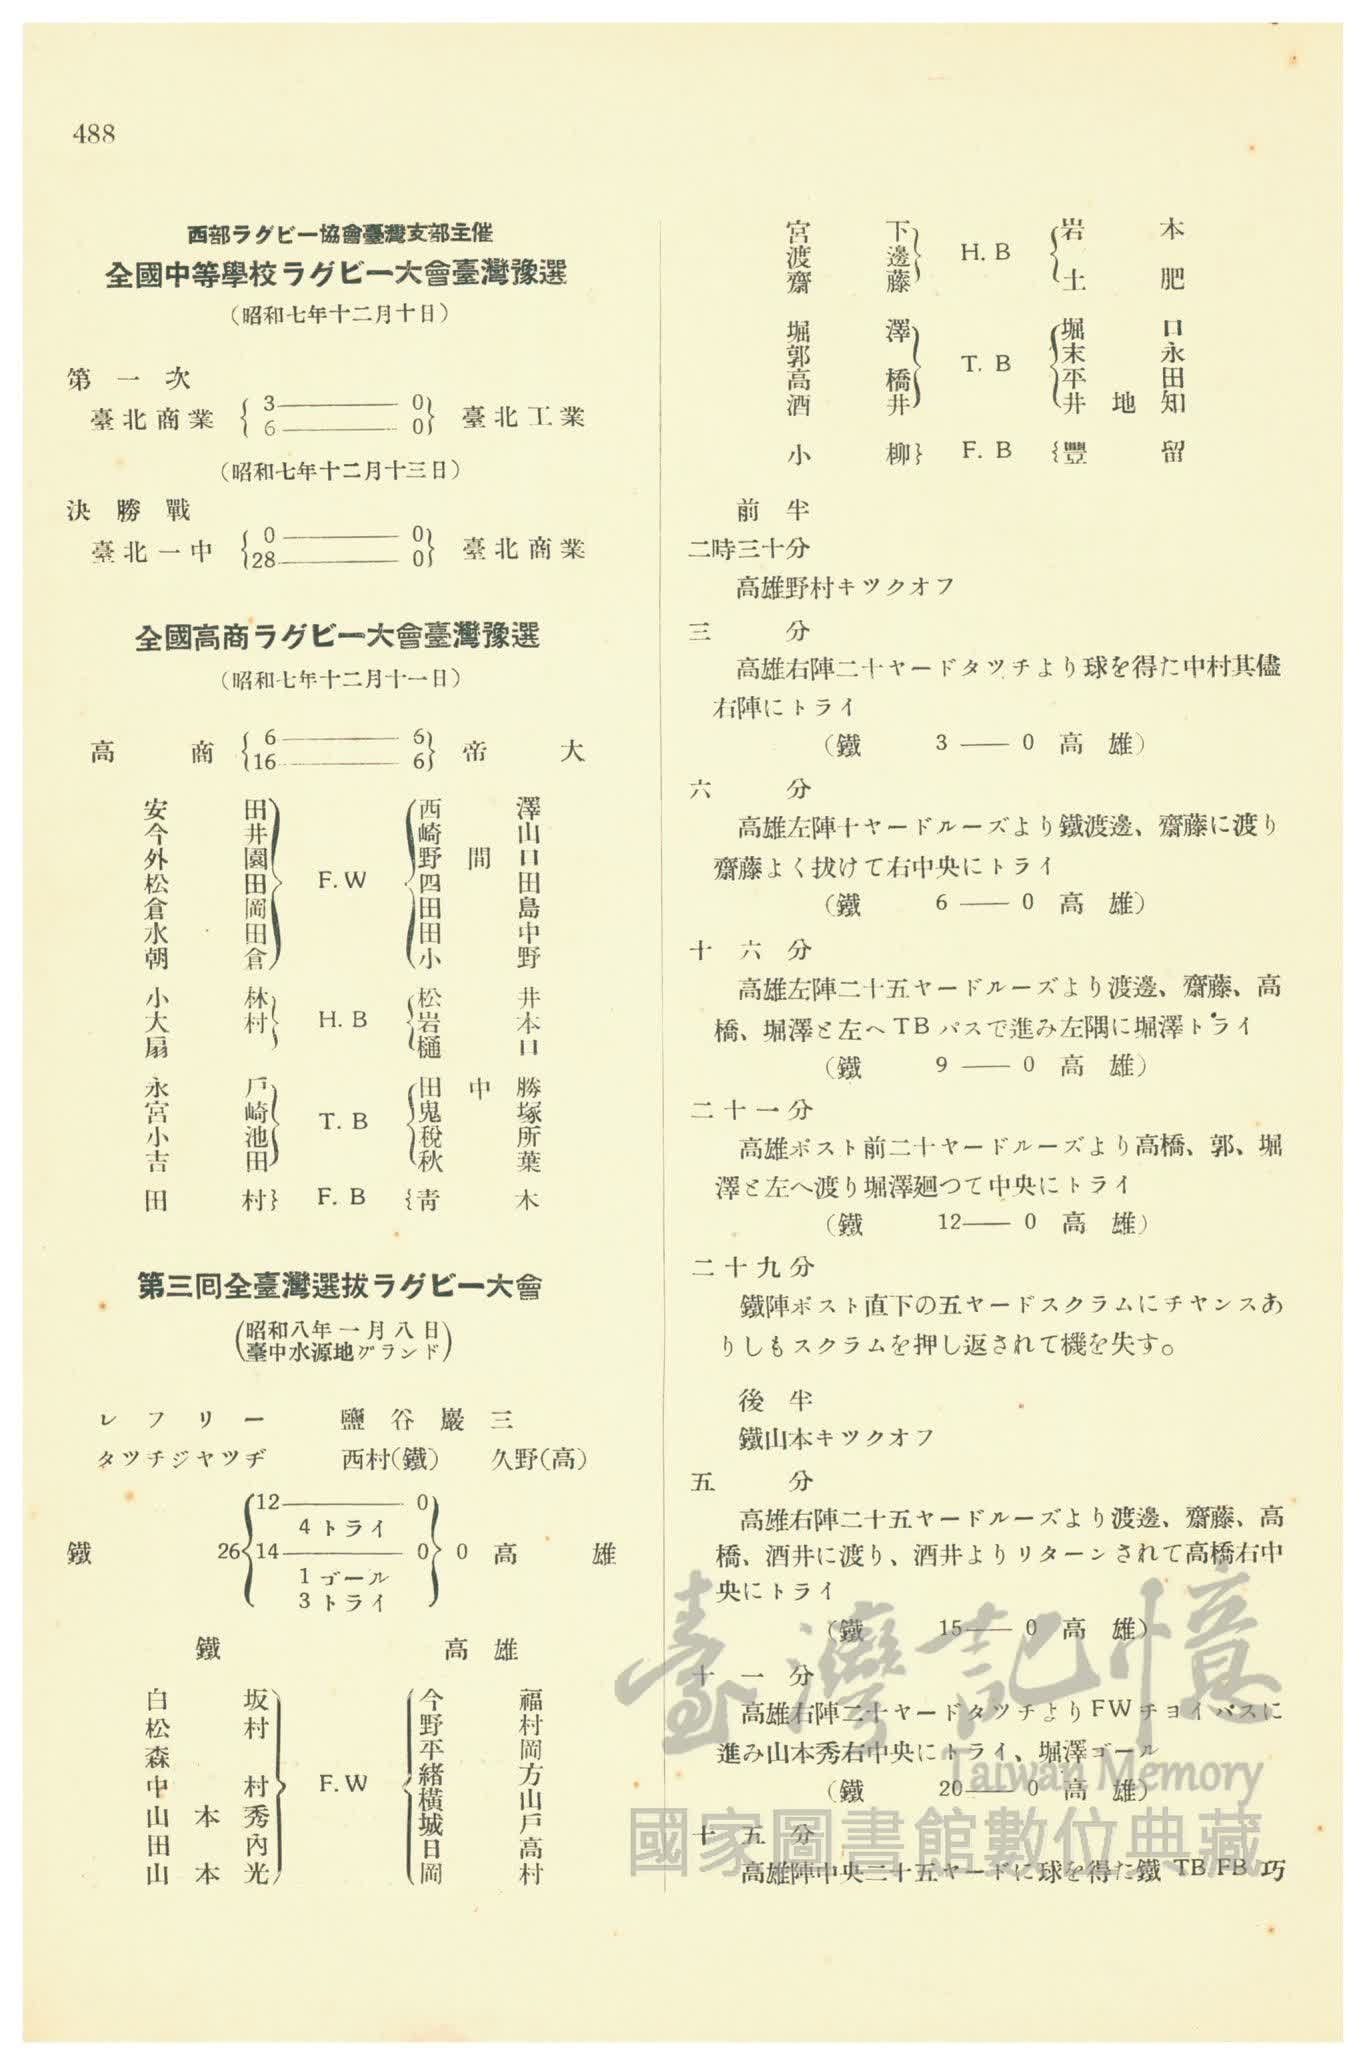 488
西部ラグビー協會臺灣支部主催
全國中等學校ラグビー大會臺灣豫選
（昭和七年十二月十日）
第一次
臺北商業 { 3 —— 0 } 臺北工業
{ 6 —— 0 }
（昭和七年十二月十三日）
決勝戰
臺北一中 { 0 —— 0 } 臺北商業
{ 28 —— 0 }
全國高商ラグビー大會臺灣豫選
（昭和七年十二月十一日）
高商 { 6 —— 6 } 帝大
{ 16 —— 6 }
安田 西澤
今井 崎山
外園 野間口
松田 F.W 四田
倉岡 田島
水田 田中
朝倉 小野
小林 松井
大村 H.B 岩本
扇 樋口
永戶 田中勝
宮崎 T.B 鬼塚
小池 稅所
吉田 秋葉
田村 F.B 靑木
第三回全臺灣選拔ラグビー大會
（昭和八年一月八日
臺中水源地グランド）
レフリー 鹽谷巖三
タツチジヤツヂ 西村(鐵) 久野(高)
12 —— 0
4 トライ
鐵 26 14 —— 0 0 高雄
1 ゴール
3 トライ
鐵 高雄
白坂 今福
松村 野村
森 平岡
中村 F.W 緒方
山本秀 橫山
田內 城戶
山本光 日高
岡村
宮下 岩本
渡邊 H.B
齋藤 土肥
堀澤 堀口
郭 T.B 末永
高橋 平田
酒井 井地知
小柳 F.B 豐留
前半
二時三十分
高雄野村キツクオフ
三分
高雄右陣二十ヤードタツチより球を得た中村其儘
右陣にトライ
（鐵 3 —— 0 高雄）
六分
高雄左陣十ヤードルーズより鐵渡邊、齋藤に渡り
齋藤よく拔けて右中央にトライ
（鐵 6 —— 0 高雄）
十六分
高雄左陣二十五ヤードルーズより渡邊、齋藤、高
橋、堀澤と左へTBパスで進み左隅に堀澤トライ
（鐵 9 —— 0 高雄）
二十一分
高雄ポスト前二十ヤードルーズより高橋、郭、堀
澤と左へ渡り堀澤廻つて中央にトライ
（鐵 12 —— 0 高雄）
二十九分
鐵陣ポスト直下の五ヤードスクラムにチヤンスあ
りしもスクラムを押し返されて機を失す。
後半
鐵山本キツクオフ
五分
高雄右陣二十五ヤードルーズより渡邊、齋藤、高
橋、酒井に渡り、酒井よりリターンされて高橋右中
央にトライ
（鐵 15 —— 0 高雄）
十一分
高雄右陣二十ヤードタツチよりFWチヨイパスに
進み山本秀右中央にトライ、堀澤ゴール
（鐵 20 —— 0 高雄）
十五分
高雄陣中央二十五ヤードに球を得た鐵 TB FB 巧
臺灣記憶
Taiwan Memory
國家圖書館數位典藏